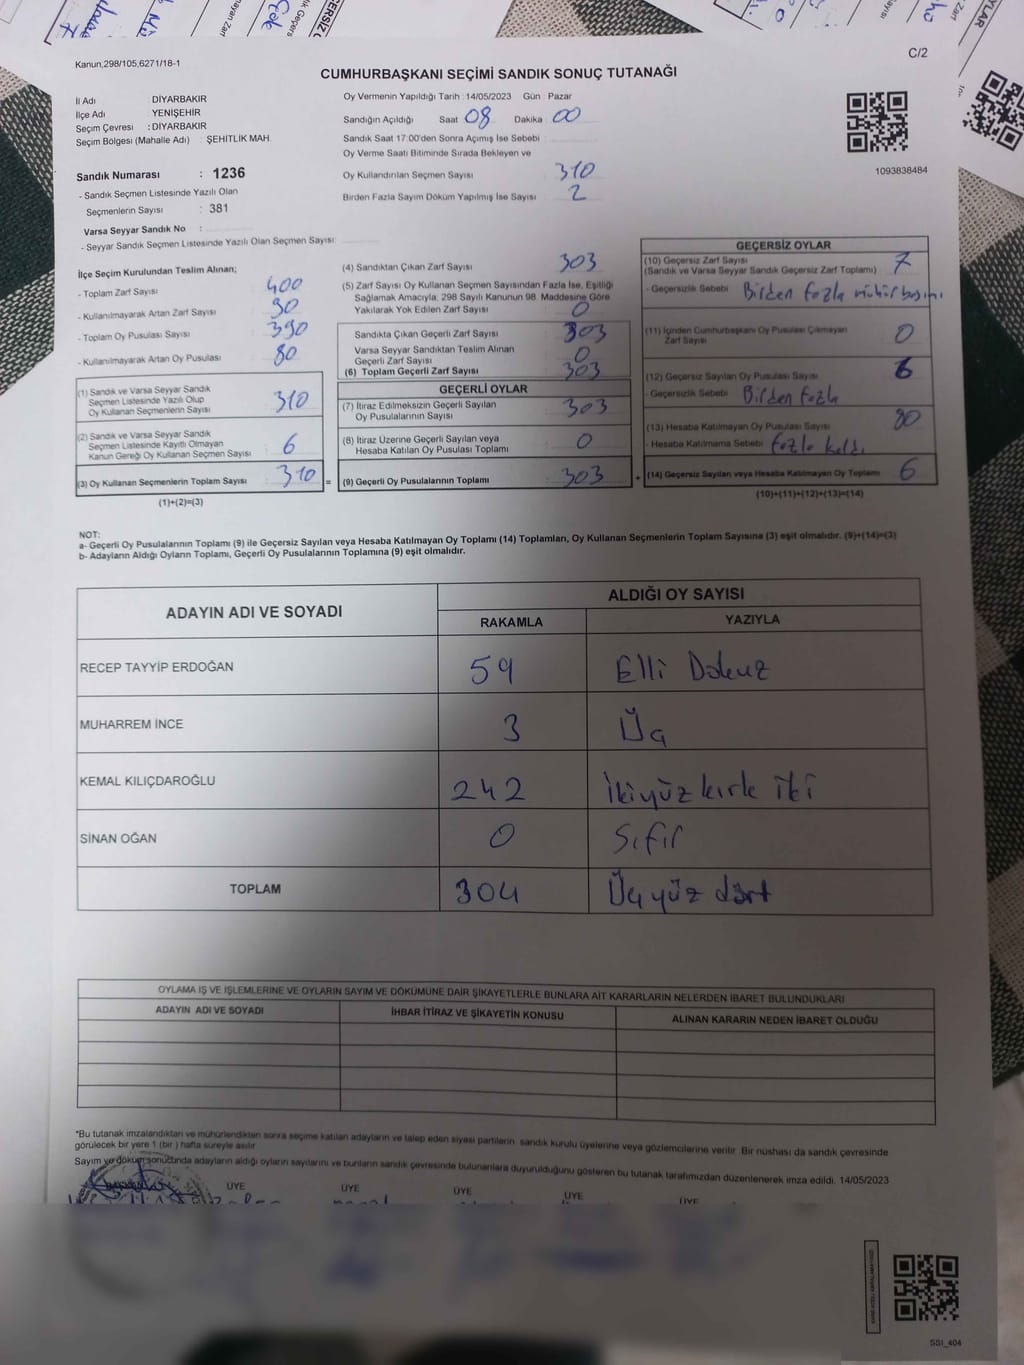 Kanun,298/105,6271/18-1
C/2
CUMHURBAŞKANI SEÇİMİ SANDIK SONUÇ TUTANAĞI
İl Adı : DİYARBAKIR
İlçe Adı : YENİŞEHİR
Seçim Çevresi : DİYARBAKIR
Seçim Bölgesi (Mahalle Adı) : ŞEHİTLİK MAH.
Oy Vermenin Yapıldığı Tarih : 14/05/2023 Gün : Pazar
Sandığın Açıldığı Saat 08 Dakika : 00
Sandık Saat 17:00'den Sonra Açımış İse Sebebi :
Oy Verme Saati Bitiminde Sırada Bekleyen ve
Oy Kullandırılan Seçmen Sayısı : 310
Birden Fazla Sayım Döküm Yapılmış İse Sayısı : 2
1093838484
Sandık Numarası : 1236
- Sandık Seçmen Listesinde Yazılı Olan
Seçmenlerin Sayısı : 381
Varsa Seyyar Sandık No :
- Seyyar Sandık Seçmen Listesinde Yazılı Olan Seçmen Sayısı:
İlçe Seçim Kurulundan Teslim Alınan;
- Toplam Zarf Sayısı : 400
- Kullanılmayarak Artan Zarf Sayısı : 90
- Toplam Oy Pusulası Sayısı : 390
- Kullanılmayarak Artan Oy Pusulası : 80
(1) Sandık ve Varsa Seyyar Sandık
Seçmen Listesinde Yazılı Olup
Oy Kullanan Seçmenlerin Sayısı : 310
(2) Sandık ve Varsa Seyyar Sandık
Seçmen Listesinde Kayıtlı Olmayan
Kanun Gereği Oy Kullanan Seçmen Sayısı : 6
(3) Oy Kullanan Seçmenlerin Toplam Sayısı : 310 =
(1)+(2)=(3)
(4) Sandıktan Çıkan Zarf Sayısı : 303
(5) Zarf Sayısı Oy Kullanan Seçmen Sayısından Fazla İse, Eşitliği
Sağlamak Amacıyla, 298 Sayılı Kanunun 98. Maddesine Göre
Yakılarak Yok Edilen Zarf Sayısı : 0
Sandıkta Çıkan Geçerli Zarf Sayısı : 303
Varsa Seyyar Sandıktan Teslim Alınan
Geçerli Zarf Sayısı : 0
(6) Toplam Geçerli Zarf Sayısı : 303
GEÇERLİ OYLAR
(7) İtiraz Edilmeksizin Geçerli Sayılan
Oy Pusulalarının Sayısı : 303
(8) İtiraz Üzerine Geçerli Sayılan veya
Hesaba Katılan Oy Pusulası Toplamı : 0
(9) Geçerli Oy Pusulalarının Toplamı : 303 +
GEÇERSİZ OYLAR
(10) Geçersiz Zarf Sayısı
(Sandık ve Varsa Seyyar Sandık Geçersiz Zarf Toplamı) : 7
- Geçersizlik Sebebi : Birden fazla mühür basımı
(11) İçinden Cumhurbaşkanı Oy Pusulası Çıkmayan
Zarf Sayısı : 0
(12) Geçersiz Sayılan Oy Pusulası Sayısı : 6
- Geçersizlik Sebebi : Birden fazla
(13) Hesaba Katılmayan Oy Pusulası Sayısı : 80
- Hesaba Katılmama Sebebi : fazla kaldı
(14) Geçersiz Sayılan veya Hesaba Katılmayan Oy Toplamı : 6
(10)+(11)+(12)+(13)=(14)
NOT:
a- Geçerli Oy Pusulalarının Toplamı (9) ile Geçersiz Sayılan veya Hesaba Katılmayan Oy Toplamı (14) Toplamları, Oy Kullanan Seçmenlerin Toplam Sayısına (3) eşit olmalıdır. (9)+(14)=(3)
b- Adayların Aldığı Oyların Toplamı, Geçerli Oy Pusulalarının Toplamına (9) eşit olmalıdır.
ADAYIN ADI VE SOYADI
ALDIĞI OY SAYISI
RAKAMLA YAZIYLA
RECEP TAYYİP ERDOĞAN 59 Elli Dokuz
MUHARREM İNCE 3 Üç
KEMAL KILIÇDAROĞLU 242 İkiyüz kırk iki
SİNAN OĞAN 0 Sıfır
TOPLAM 304 Üçyüz dört
OYLAMA İŞ VE İŞLEMLERİNE VE OYLARIN SAYIM VE DÖKÜMÜNE DAİR ŞİKAYETLERLE BUNLARA AİT KARARLARIN NELERDEN İBARET BULUNDUKLARI
ADAYIN ADI VE SOYADI İHBAR İTİRAZ VE ŞİKAYETİN KONUSU ALINAN KARARIN NEDEN İBARET OLDUĞU
*Bu tutanak imzalandıktan ve mühürlendikten sonra seçime katılan adayların ve talep eden siyasi partilerin sandık kurulu üyelerine veya gözlemcilerine verilir. Bir nüshası da sandık çevresinde
görülecek bir yere 1 (bir ) hafta süreyle asılır.
Sayım ve döküm sonucunda adayların aldığı oyların sayılarını ve bunların sandık çevresinde bulunanlara duyurulduğunu gösteren bu tutanak tarafımızdan düzenlenerek imza edildi. 14/05/2023
ÜYE ÜYE ÜYE ÜYE ÜYE
SSI_404